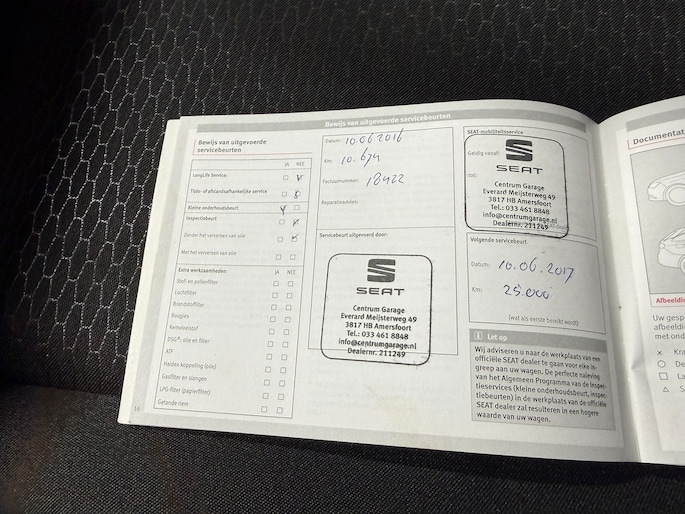 Bewijs van uitgevoerde servicebeurten
Bewijs van uitgevoerde
servicebeurten
JA NEE
LongLife Service:
Tijds- of afstandsafhankelijke service
Kleine onderhoudsbeurt
Inspectiebeurt
Zonder het verversen van olie
Met het verversen van olie
Extra werkzaamheden:
JA NEE
Stof- en pollenfilter
Luchtfilter
Brandstoffilter
Bougies
Remvloeistof
DSG®: olie en filter
ATF
Haldex-koppeling (olie)
Gasfilter en slangen
LPG-filter (papierfilter)
Getande riem
14
Datum: 10.06.2016
Km: 10.674
Factuurnummer: 18422
Reparatieadvies:
Servicebeurt uitgevoerd door:
SEAT
Centrum Garage
Everard Meijsterweg 49
3817 HB Amersfoort
Tel.: 033 461 8848
info@centrumgarage.nl
Dealernr. 211249
SEAT-mobiliteitsservice
Geldig vanaf:
tot:
SEAT
Centrum Garage
Everard Meijsterweg 49
3817 HB Amersfoort
Tel.: 033 461 8848
info@centrumgarage.nl
Dealernr. 211249
Volgende servicebeurt
Datum: 10.06.2017
Km: 25.000
(wat als eerste bereikt wordt)
i Let op
Wij adviseren u naar de werkplaats van een
officiële SEAT dealer te gaan voor elke in-
greep aan uw wagen. De perfecte naleving
van het Algemeen Programma van de inspec-
tieservices (kleine onderhoudsbeurt, inspec-
tiebeurten) in de werkplaats van de officiële
SEAT dealer zal resulteren in een hogere
waarde van uw wagen.
Documentat
Afbeeldin
Uw gesp
afbeeldi
met ond
× Kra
○ De
□ La
△ S